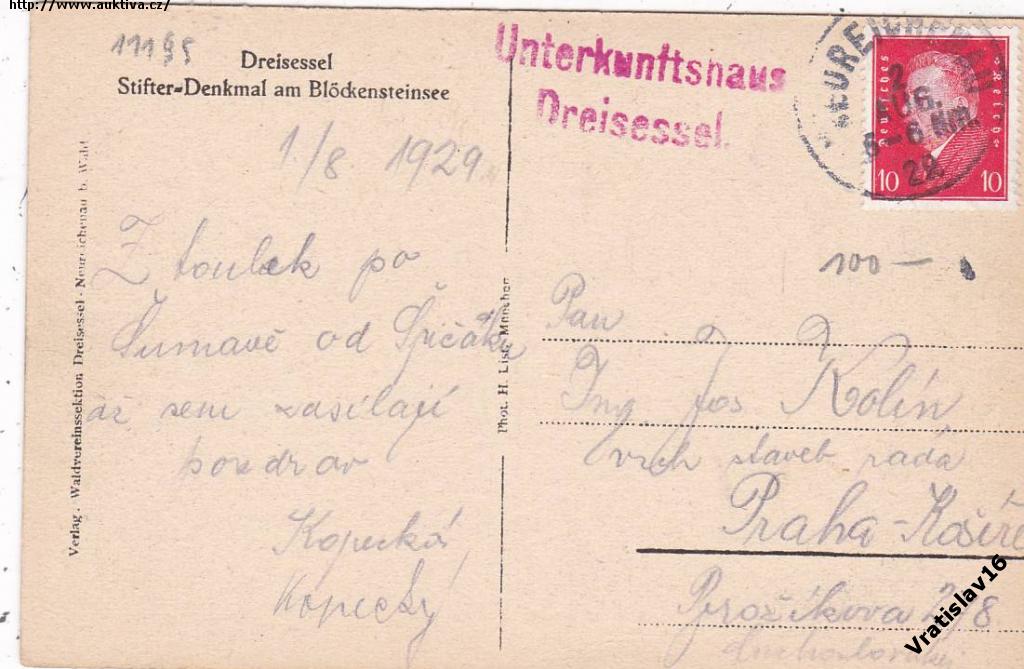 http://www.auktiva.cz/
11195
Dreisessel
Stifter-Denkmal am Blöckensteinsee
1/8 1929
Z toulek po
Šumavě od Špičáku
až sem zasílají
pozdrav
Kopecká
Kopecký
Verlag: Waldvereinssektion Dreisessel - Neureichenau b. Wald
Phot. H. List, München
Unterkunftshaus
Dreisessel.
Deutsches Reich
10 10
2
UG.
5-6 Nm.
100 —
Pan
Ing Jos Kolín
vrch staveb rada
Praha-Košíře
Brožíkova 2/8
Vratislav16